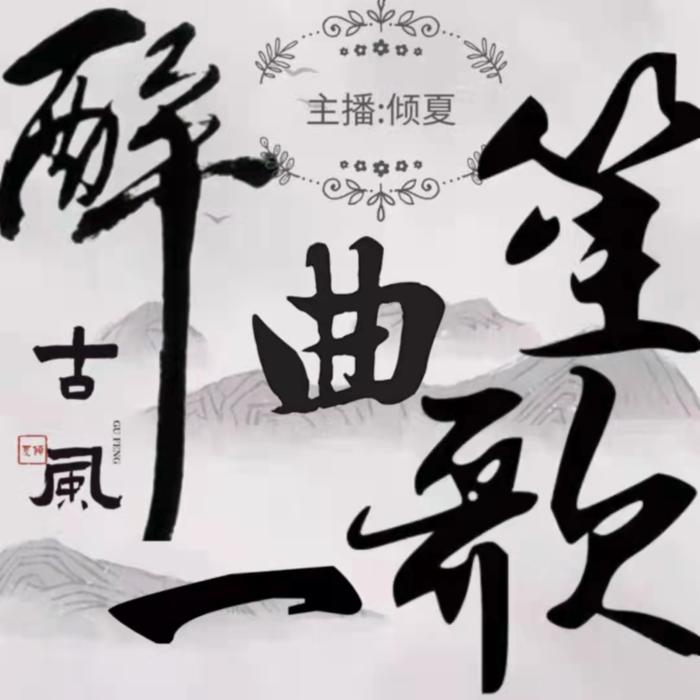 主播:倾夏
醉
一
曲
笙歌
古風
GU FENG